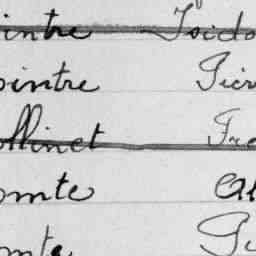 intre Isido
ointre Pier
ollinet Fra
omte Al
omte Pi